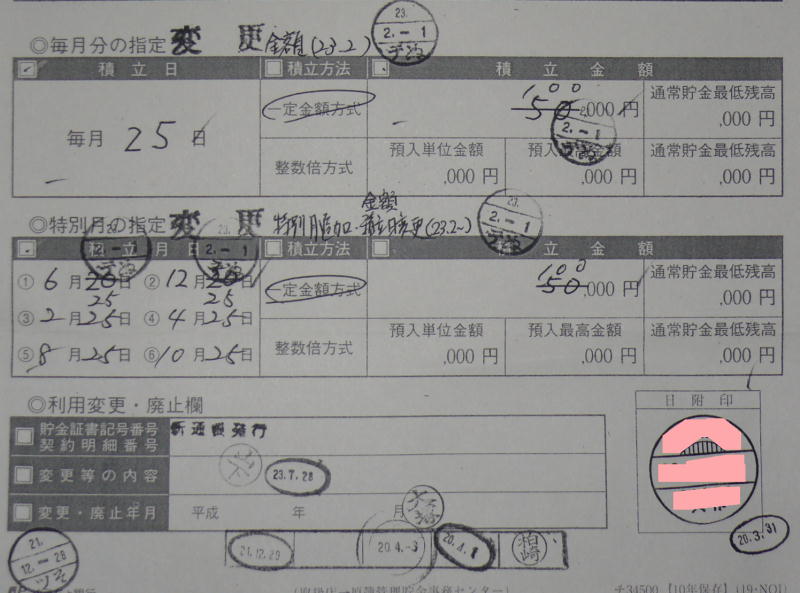 ◎毎月分の指定 変更 金額(23.2)
23. 2.-1
積立日 積立方法 積立金額
毎月 25 日
一定金額方式 100 50 ,000 円 通常貯金最低残高 ,000 円
2.-1
整数倍方式 預入単位金額 ,000 円 預入最高金額 ,000 円 通常貯金最低残高 ,000 円
◎特別月の指定 変更 特別月追加・金額 変更(23.2~)
23. 2.-1
積立月日 積立方法 積立金額
2.-1 23. 2.-1
① 6 月 20 日 25 ② 12 月 20 日 25
一定金額方式 100 50 ,000 円 通常貯金最低残高 ,000 円
③ 2 月 25 日 ④ 4 月 25 日
⑤ 8 月 25 日 ⑥ 10 月 25 日
整数倍方式 預入単位金額 ,000 円 預入最高金額 ,000 円 通常貯金最低残高 ,000 円
◎利用変更・廃止欄
日附印
貯金証書記号番号
契約明細番号
新通帳発行
変更等の内容 23.7.28
変更・廃止年月 平成 年 月
21.12.-28
21.12.29 20.4.-3 20.4.1 柏崎
20.3.31
〒34500 【10年保存】(19・NOI)